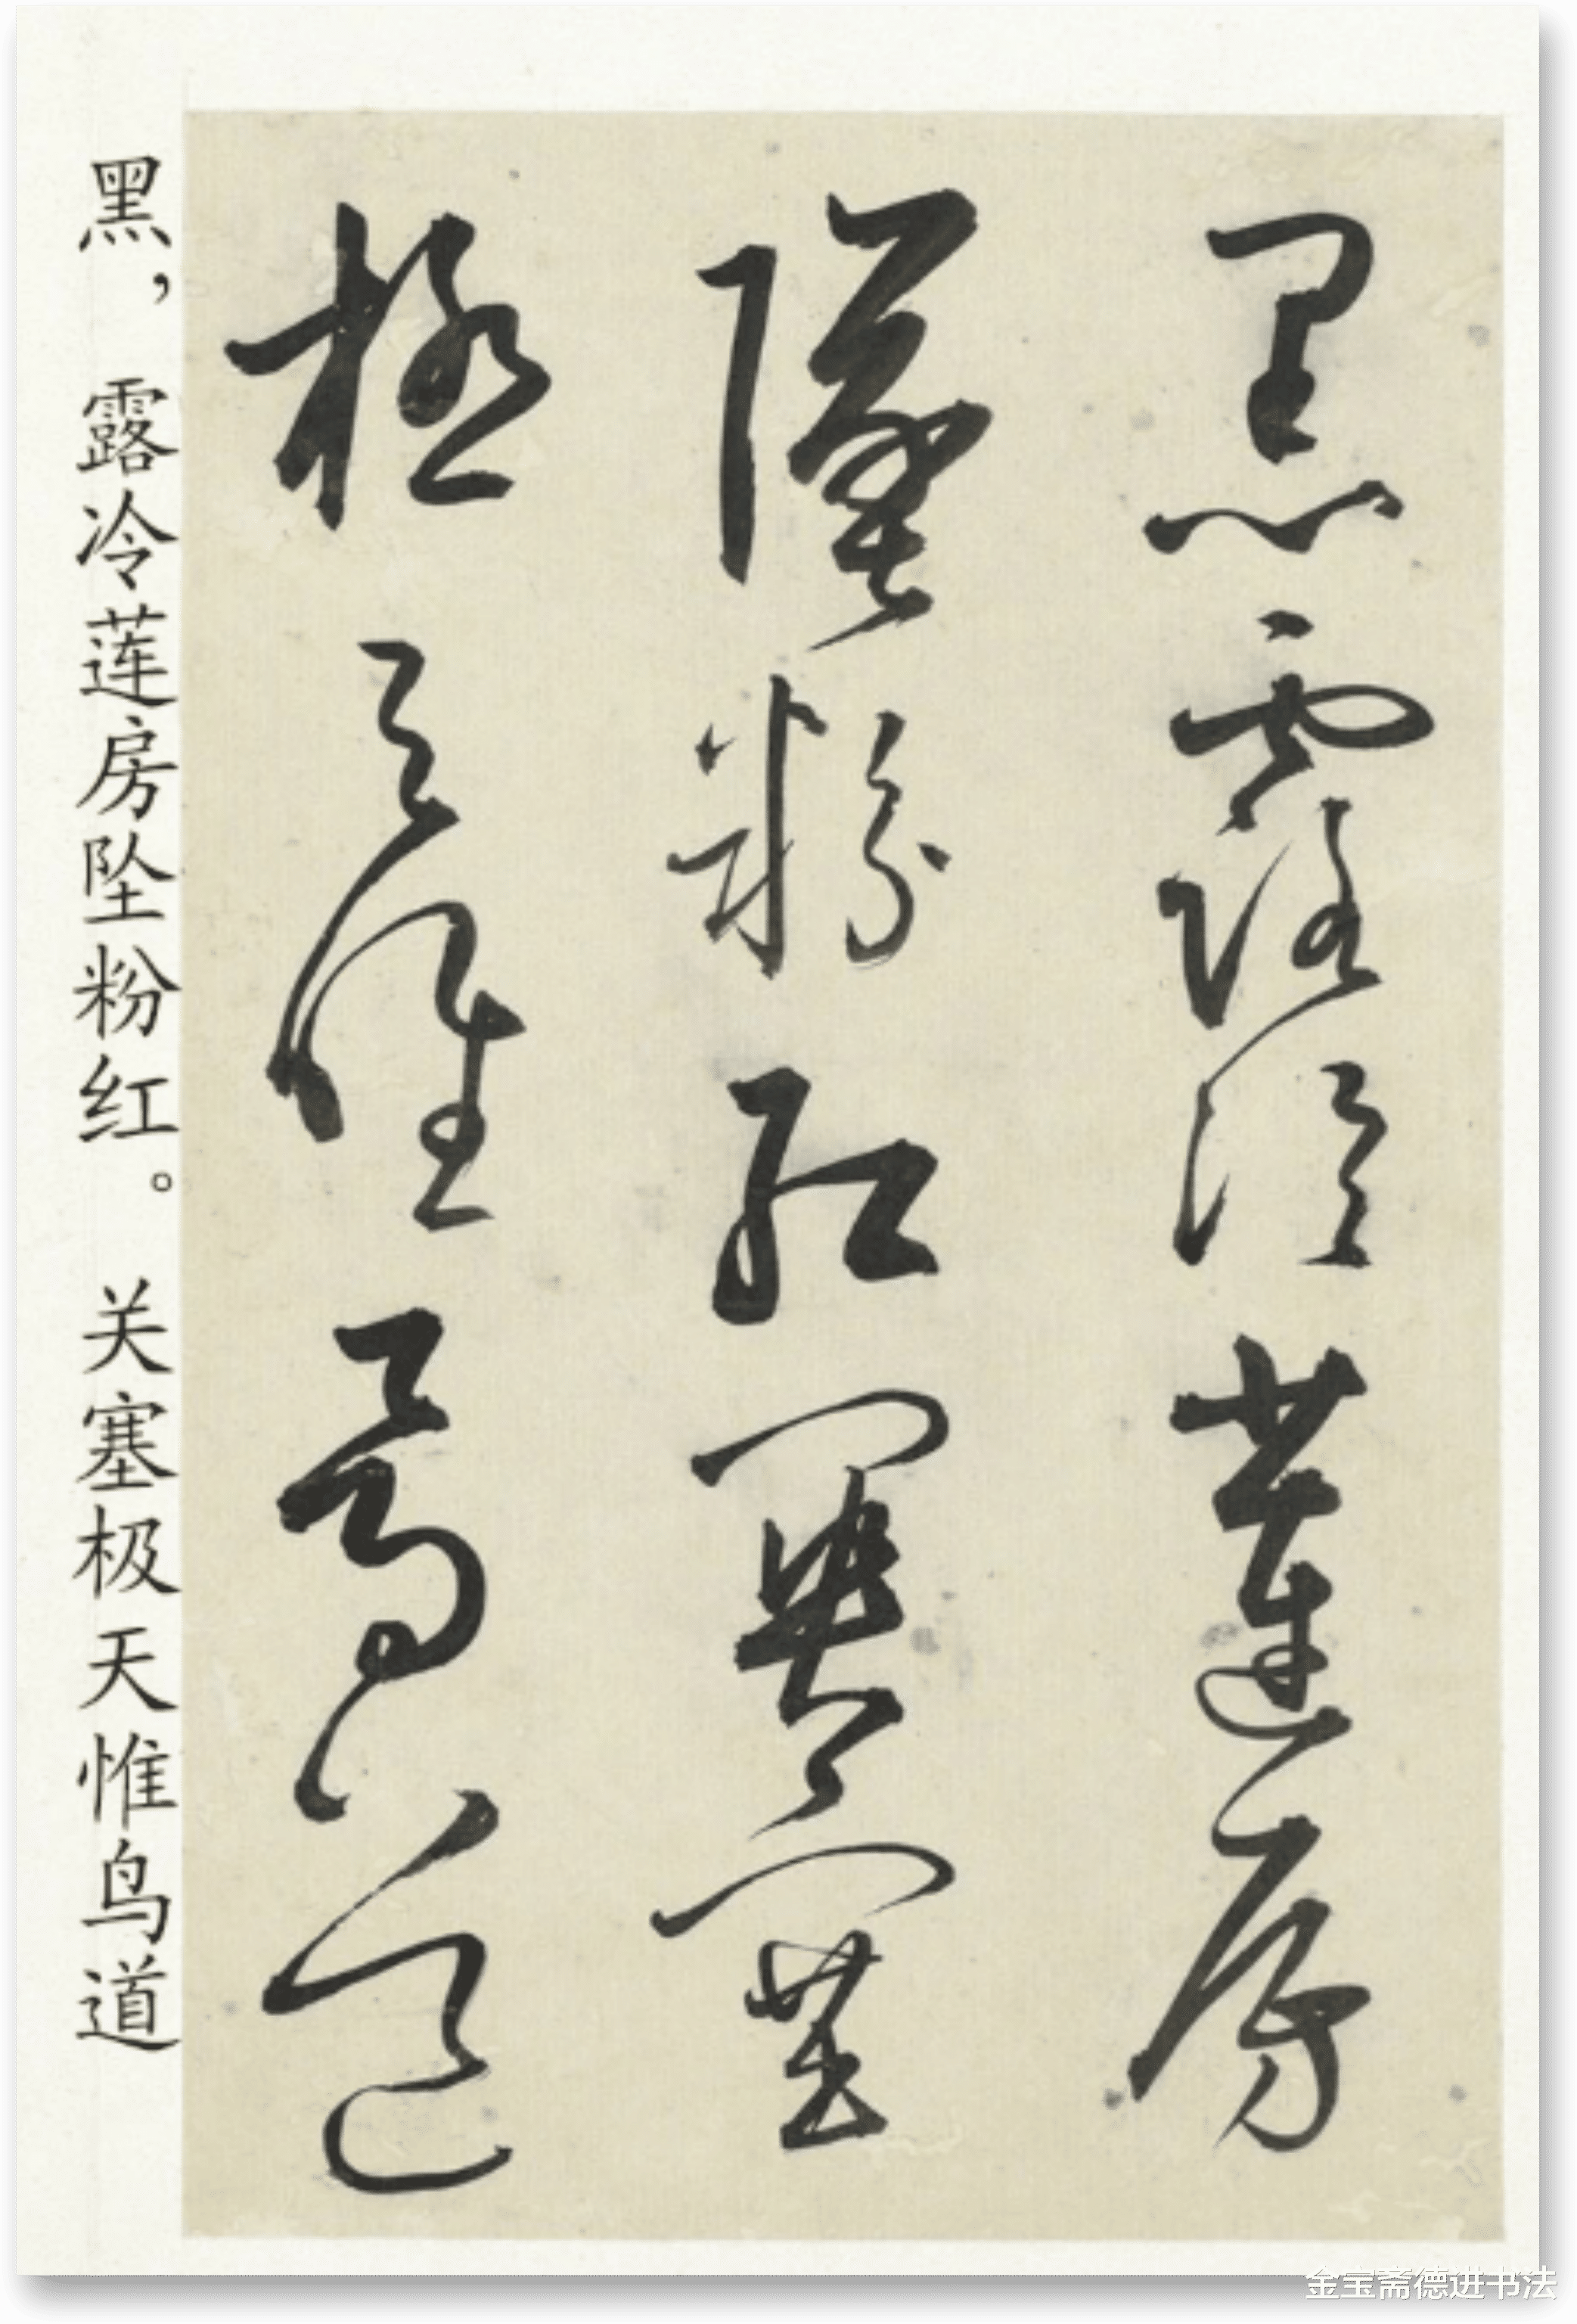 黑露冷蓮房
墜粉紅關塞
極天惟鳥道
黑，露冷莲房坠粉红。关塞极天惟鸟道
金宝斋德进书法